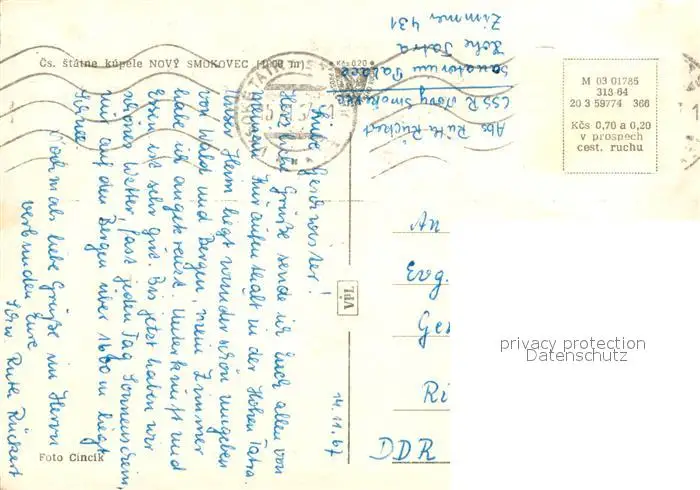 Čs. štátne kúpele NOVÝ SMOKOVEC (1000 m)
Liebe Geschwister!
Herzliche Grüße sende ich Euch allen von
meinem Kuraufenthalt in der Hohen Tatra.
Unser Heim liegt wunderschön umgeben
von Wald und Bergen, mein Zimmer
habe ich angekreuzt. Unterkunft und
Essen ist sehr gut. Bis jetzt haben wir
schönes Wetter, fast jeden Tag Sonnenschein,
nur auf den Bergen über 1600 m liegt
Schnee.
Nochmals liebe Grüße im Herrn
verbunden Eure
Schw. Ruth Rückert
14.11.67
Foto Cincík
VpL
Abs. Ruth Rückert
ČSSR Nový Smokovec
Sanatorium Palace
Hohe Tatra
Zimmer 431
Kčs 0.20
M 03 01785
313 64
20 3 59774 366
Kčs 0,70 a 0,20
v prospech
cest. ruchu
An
Evg.
Ge
Ri
DDR
privacy protection
Datenschutz